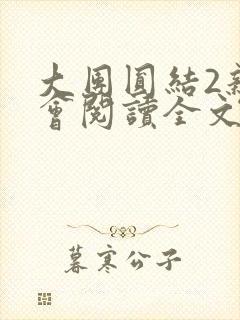 大團圓結2新
會閱讀全文
暮寒公子